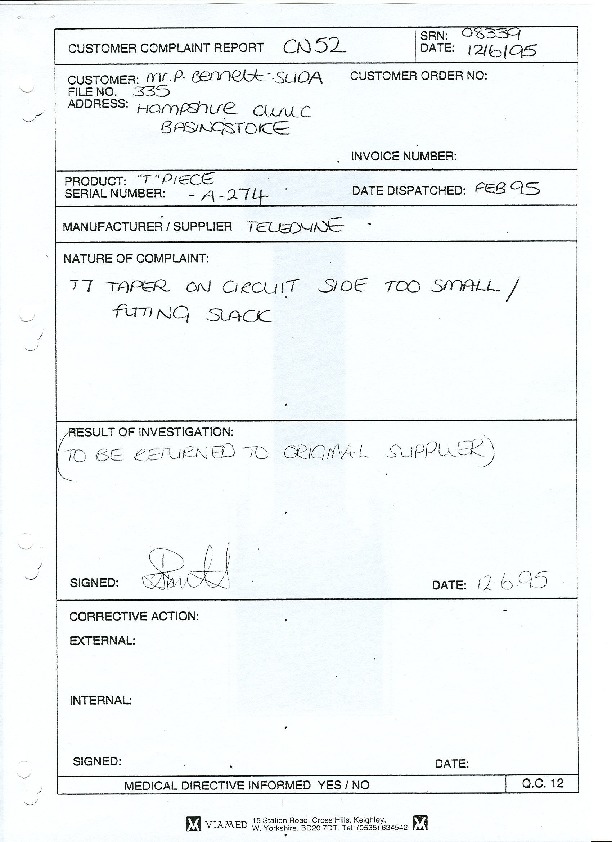 CUSTOMER COMPLAINT REPORT CN52
SRN: 08339
DATE: 12/6/95
CUSTOMER: Mr. P. Bennett - SUDA
CUSTOMER ORDER NO:
FILE NO. 335
ADDRESS: HAMPSHIRE CLINIC
BASINGSTOKE
INVOICE NUMBER:
PRODUCT: "T" PIECE
SERIAL NUMBER: - A-274
DATE DISPATCHED: FEB 95
MANUFACTURER / SUPPLIER TELEDYNE
NATURE OF COMPLAINT:
TT TAPER ON CIRCUIT SIDE TOO SMALL /
FITTING SLACK
RESULT OF INVESTIGATION:
(TO BE RETURNED TO ORIGINAL SUPPLIER)
SIGNED:
DATE: 12 6 95
CORRECTIVE ACTION:
EXTERNAL:
INTERNAL:
SIGNED:
DATE:
MEDICAL DIRECTIVE INFORMED YES / NO
Q.C. 12
VIAMED 15 Station Road, Cross Hills, Keighley,
W. Yorkshire, BD20 7DT. Tel (0535) 634542